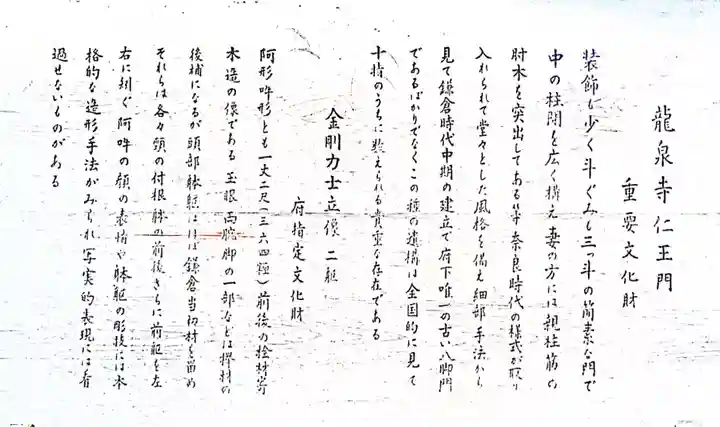 龍泉寺仁王門
重要文化財
装飾も少く斗ぐみも三つ斗の簡素な門で
中の柱間を広く構え妻の方には親柱筋の
肘木を突出してある等奈良時代の様式が取り
入れられて堂々とした風格を備え細部手法から
見て鎌倉時代中期の建立で府下唯一の古い八脚門
であるばかりでなくこの種の遺構は全国的に見て
十指のうちに数えられる貴重な存在である
金剛力士立像 二躯
府指定文化財
阿形吽形とも一丈二尺(三六四糎)前後の桧材寄
木造の像である 玉眼両腕脚の一部などは欅材の
後補になるが頭部躰躯はほぼ鎌倉当初材を留め
それらは各々頭の付根躰の前後さらに前躯を左
右に剥ぐ阿吽の顔の表情や躰躯の彫技には本
格的な造形手法がみられ写実的表現には看
過せないものがある